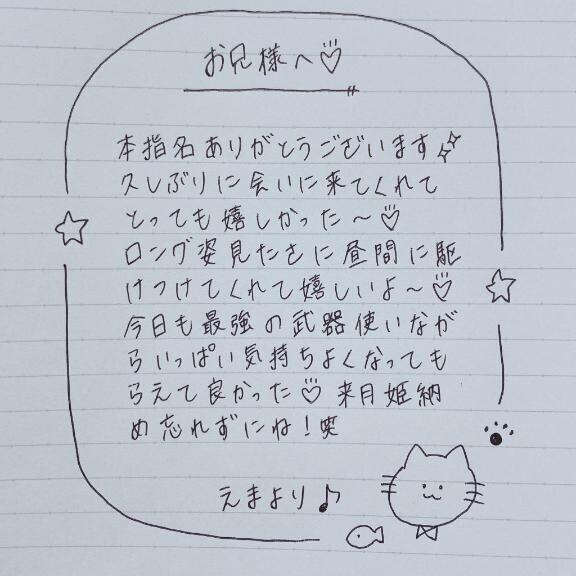 お兄様へ♡
本指名ありがとうございます
久しぶりに会いに来てくれて
とっても嬉しかった〜♡
ロング姿見たさに昼間に駆
けつけてくれて嬉しいよ〜♡
今日も最強の武器使いなが
らいっぱい気持ちよくなっても
らえて良かった♡ 来月姫納
め忘れずにね！笑
えまより♪